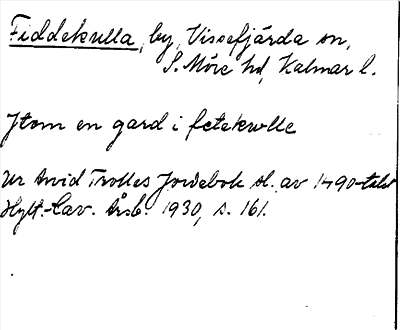 Fiddekulla, by, Vissefjärda sn,
S. Möre hd, Kalmar l.
Jtom en gard i fetekwlle
Ur Arvid Trolles Jordebok sl. av 1490-talet
Hylt.-Cav. Årsb. 1930, s. 161.